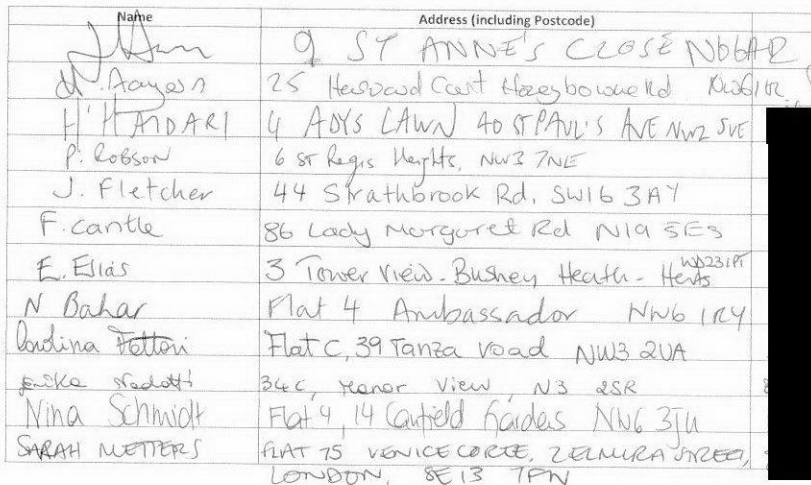 Name Address (including Postcode)
9 ST ANNE'S CLOSE N66AR
25 Court Rd
H. HAIDARI 4 ADYS LAWN 40 ST PAUL'S AVE NW2 5UE
P. ROBSON 6 St Regis Heights, NW3 7NE
J. Fletcher 44 Strathbrook Rd, SW16 3AY
F. cantle 86 Lady Margaret Rd N19 5ES
E. Elias 3 Tower View - Bushey Heath - Herts WD231PT
N Bahar Flat 4 Ambassador NW6 1RY
Flat C, 39 Tanza road NW3 2UA
34c, Manor View, N3 2SR
Nina Schmidt Flat 4, 14 Canfield Gardens NW6 3JU
SARAH METTERS FLAT 75 VENICE CORTE,
LONDON, SE13